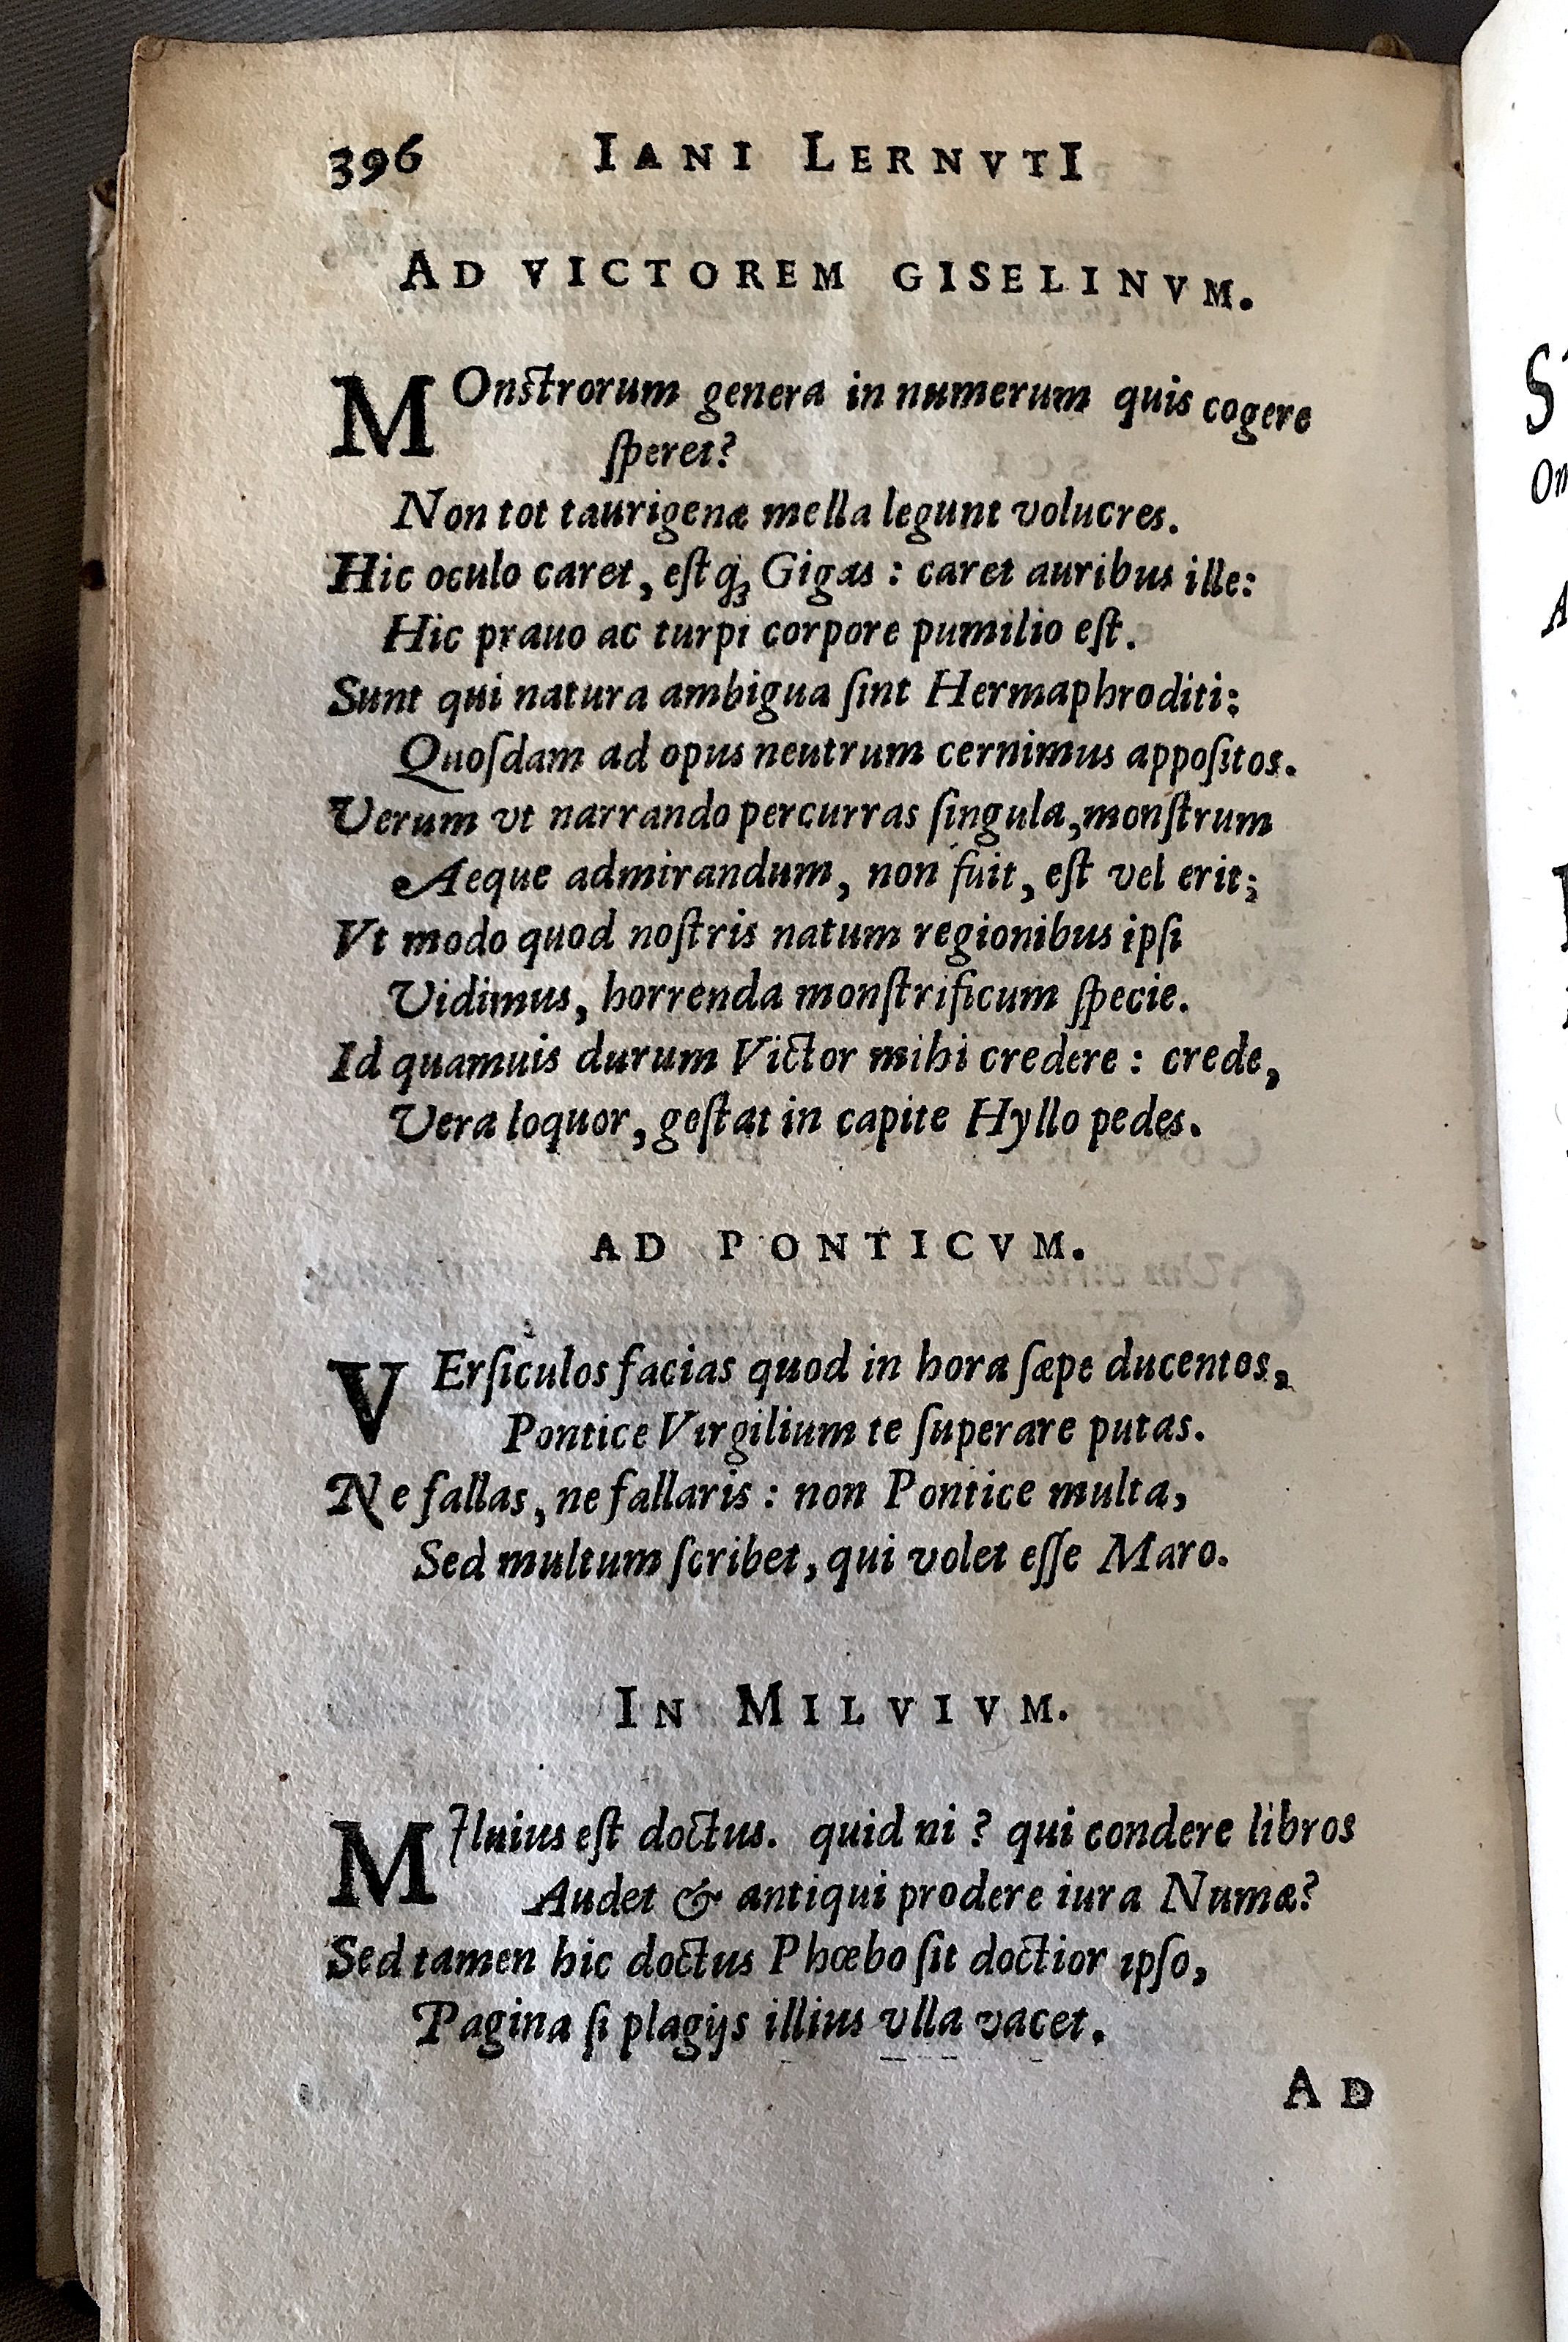 396 IANI LERNVTI
AD VICTOREM GISELINVM.
MOnſtrorum genera in numerum quis cogere
ſperet?
Non tot taurigenæ mella legunt volucres.
Hic oculo caret, eſtq́ꝫ Gigas : caret auribus ille:
Hic prauo ac turpi corpore pumilio eſt.
Sunt qui natura ambigua ſint Hermaphroditi;
Quoſdam ad opus neutrum cernimus appoſitos.
Verum vt narrando percurras ſingula, monſtrum
Aeque admirandum, non fuit, eſt vel erit;
Vt modo quod noſtris natum regionibus ipſi
Vidimus, horrenda monſtrificum ſpecie.
Id quamuis durum Victor mihi credere : crede,
Vera loquor, geſtat in capite Hyllo pedes.
AD PONTICVM.
VErſiculos facias quod in hora ſæpe ducentos,
Pontice Virgilium te ſuperare putas.
Ne fallas, ne fallaris : non Pontice multa,
Sed multum ſcribet, qui volet eſſe Maro.
IN MILVIVM.
MIluius eſt doctus. quid ni ? qui condere libros
Audet & antiqui prodere iura Numæ?
Sed tamen hic doctus Phœbo ſit doctior ipſo,
Pagina ſi plagijs illius vlla vacet.
AD